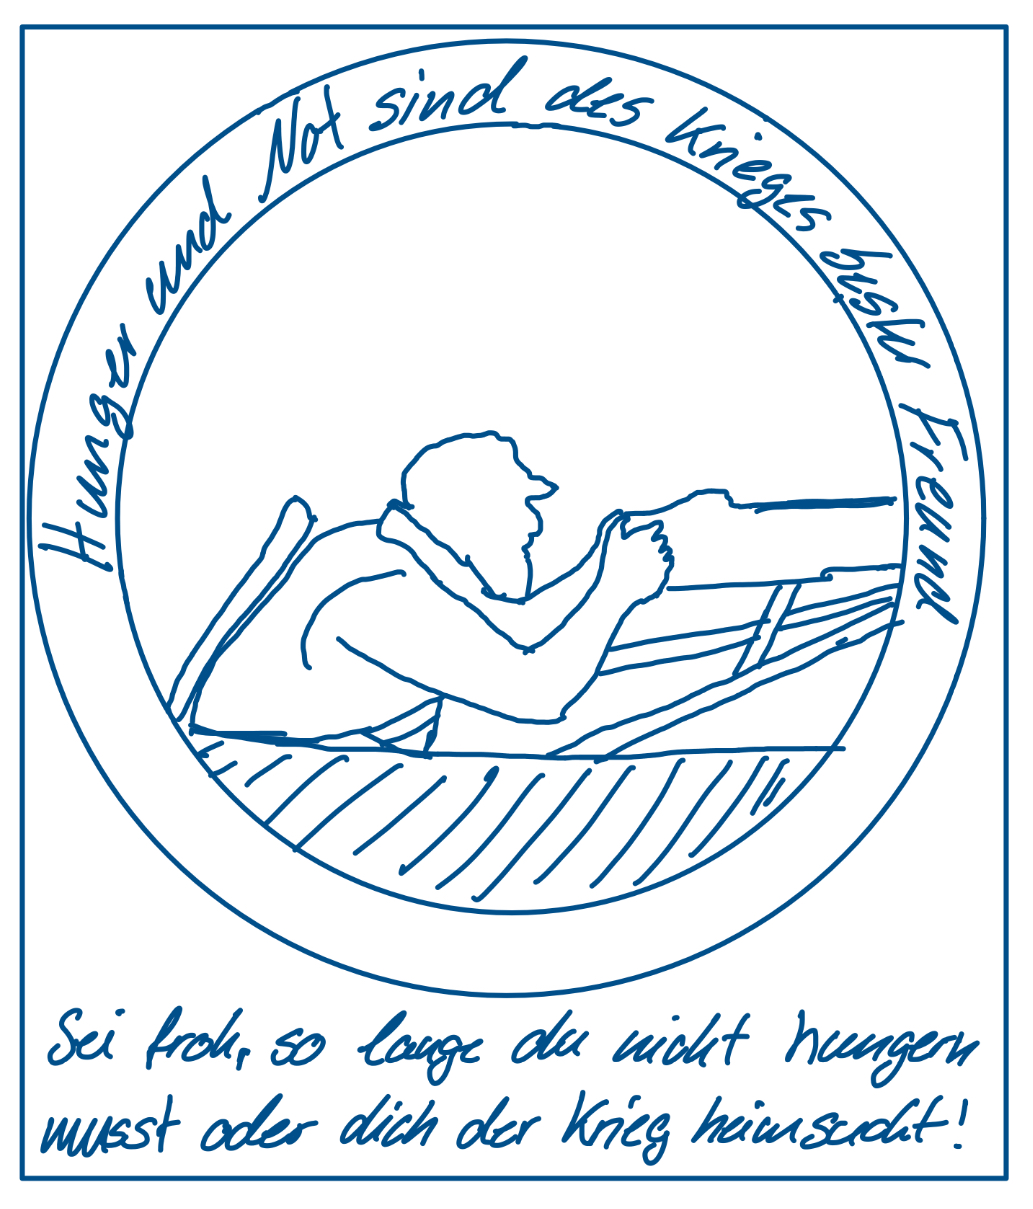 Hunger und Not sind des Krieges bester Freund
Sei froh, so lange du nicht hungern
musst oder dich der Krieg heimsucht!